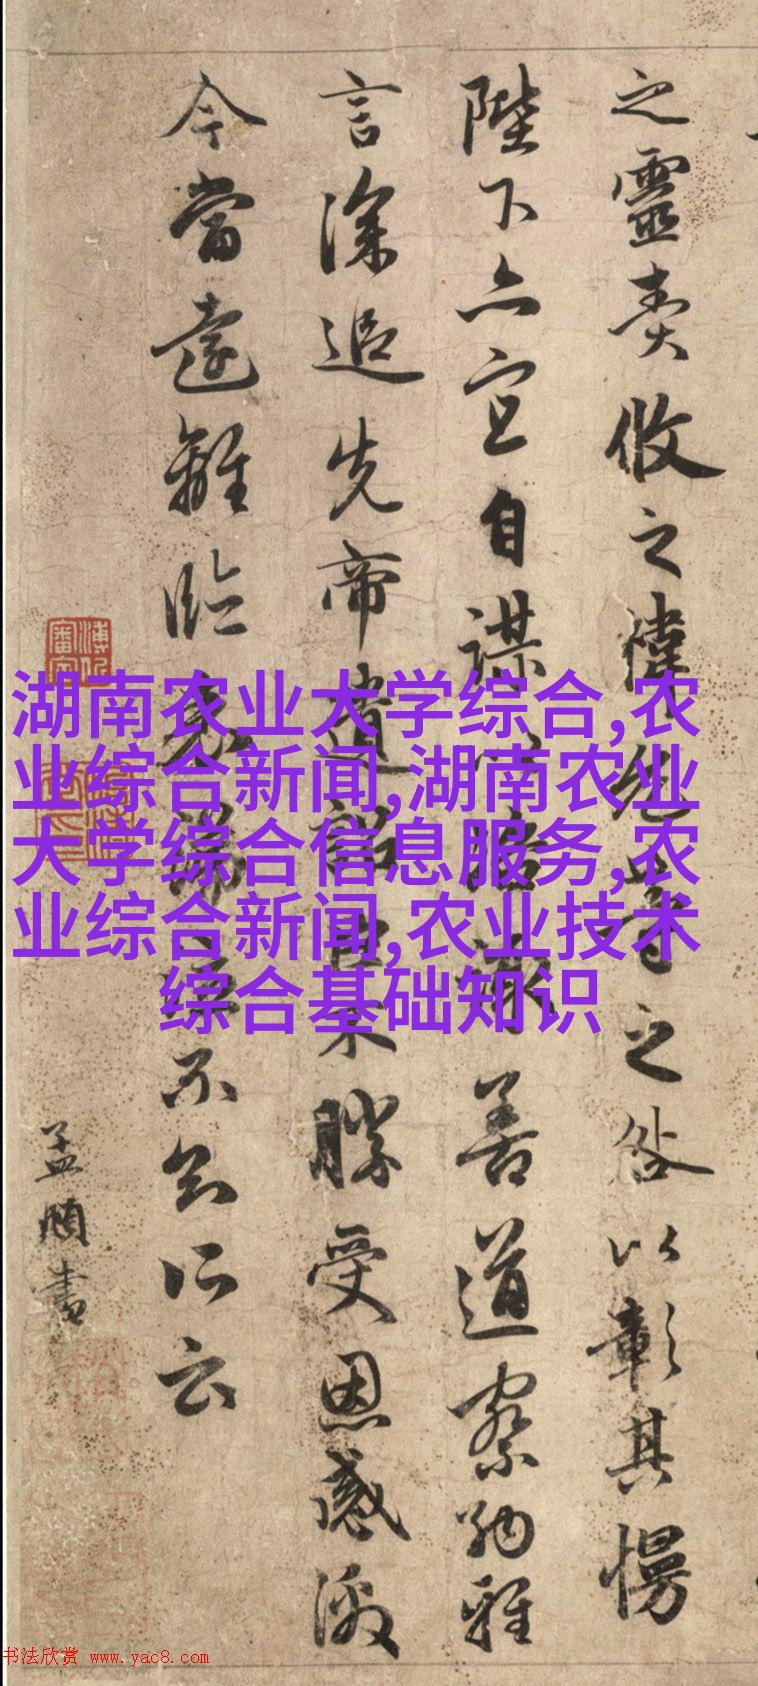 之靈責攸之禕允等之咎以彰其慢
陛下亦宜自謀以諮諏善道察納雅
言深追先帝遺詔臣不勝受恩感激
今當遠離臨表不知所云
孟頫書
湖南农业大学综合,农
业综合新闻,湖南农业
大学综合信息服务,农
业综合新闻,农业技术
综合基础知识
书法欣赏 www.yac8.com